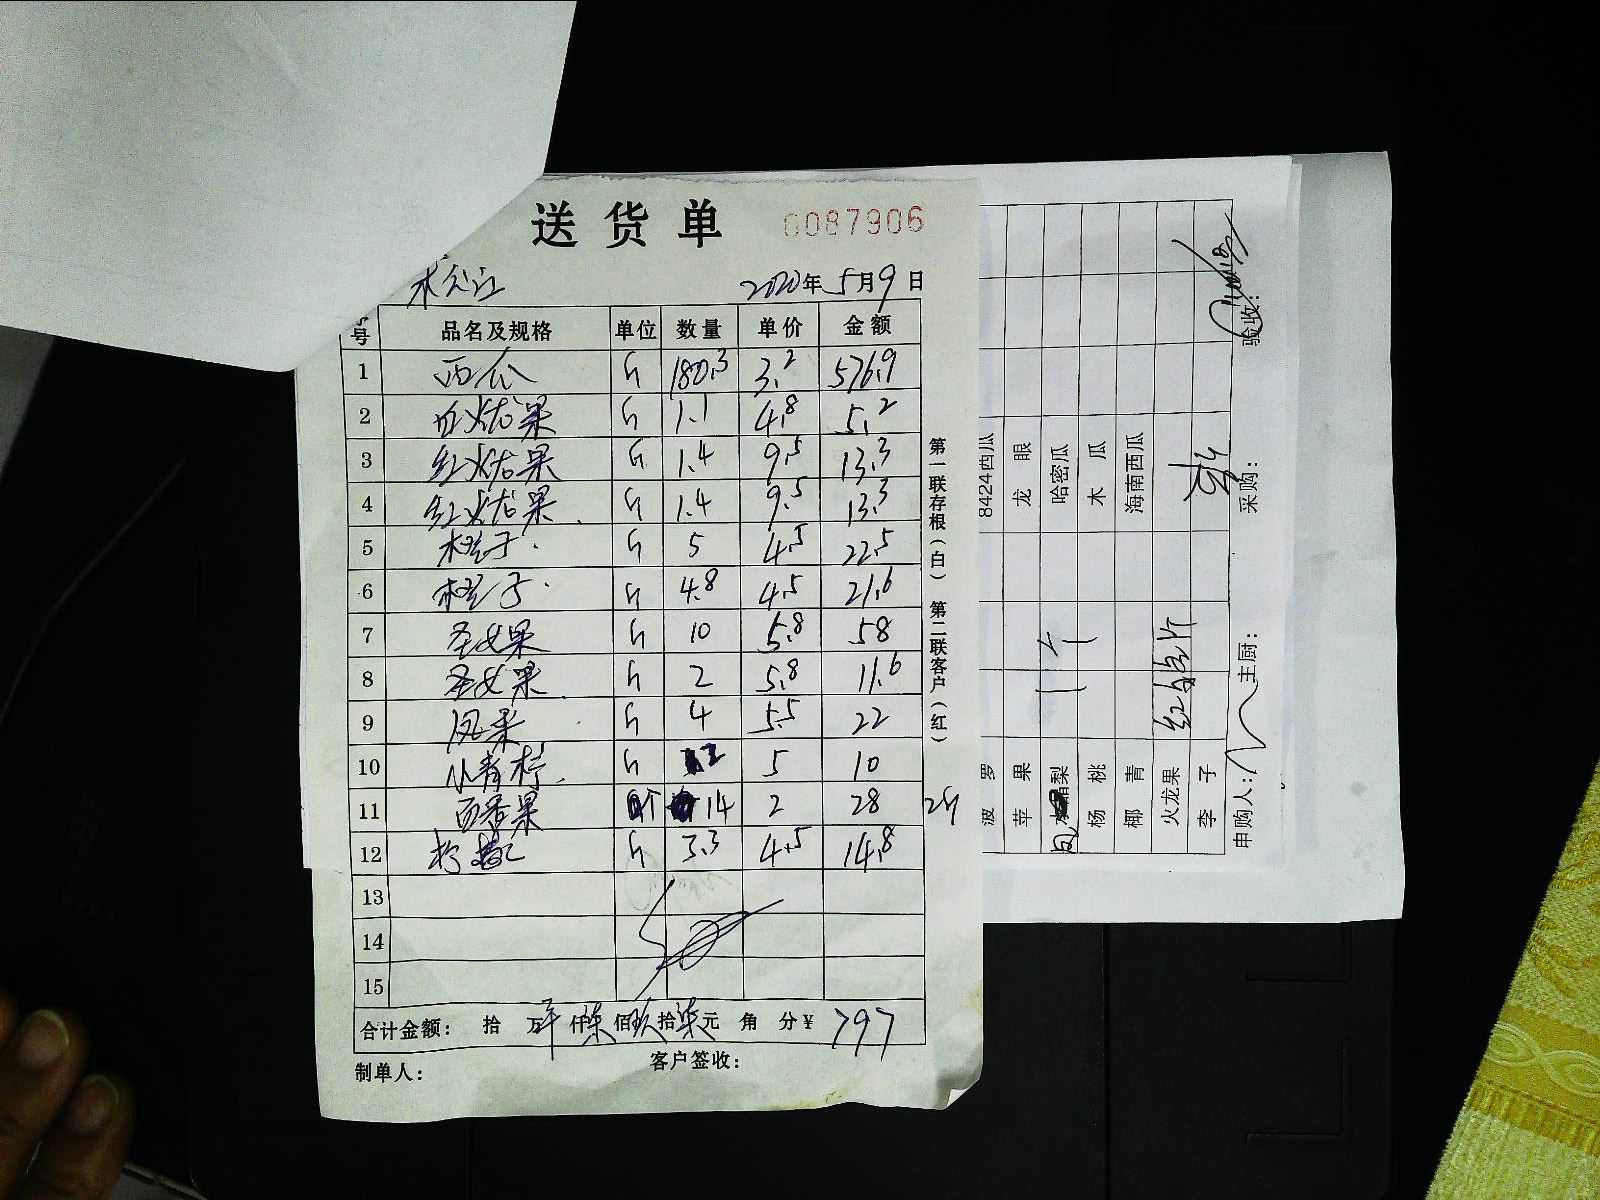 送货单 0087906
2020年5月9日
号 品名及规格 单位 数量 单价 金额
1 西瓜 斤 180.3 3.2 576.9
2 白火龙果 斤 1.1 4.8 5.2
3 红火龙果 斤 1.4 9.5 13.3
4 红火龙果 斤 1.4 9.5 13.3
5 橙子 斤 5 4.5 22.5
6 橙子 斤 4.8 4.5 21.6
7 圣女果 斤 10 5.8 58
8 圣女果 斤 2 5.8 11.6
9 凤梨 斤 4 5.5 22
10 小青柠 斤 2 5 10
11 百香果 个 14 2 28
12 柠檬 斤 3.3 4.5 14.8
13
14
15
合计金额： 拾 万 仟柒佰玖拾柒元 角 分¥ 797
制单人： 客户签收：
第一联存根（白） 第二联客户（红）
8424西瓜
龙眼
哈密瓜
木瓜
海南西瓜
波罗
苹果
杨桃
椰青
火龙果
李子
申购人： 主厨： 采购： 验收：